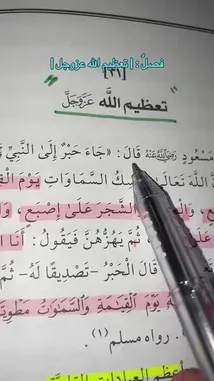 فصلٌ: | تعظيم الله عزوجل |
[٣١]
تعظيم اللَّه عَزَّوَجَلَّ
مَسْعُودٍ رَضِيَاللَّهُعَنْهُ قَالَ: «جَاءَ حَبْرٌ إِلَى النَّبِيِّ
اللَّهَ تَعَالَى السَّمَاوَاتِ يَوْمَ
الشَّجَرَ عَلَى إِصْبَعٍ،
ثُمَّ يَهُزُّهُنَّ فَيَقُولُ: أَنَا
قَالَ الْحَبْرُ - تَصْدِيقًا لَهُ - ثُمَّ
يَوْمَ الْقِيَٰمَةِ وَالسَّمَٰوَٰتُ
. رواه مسلم (١).
أعظم العبادات